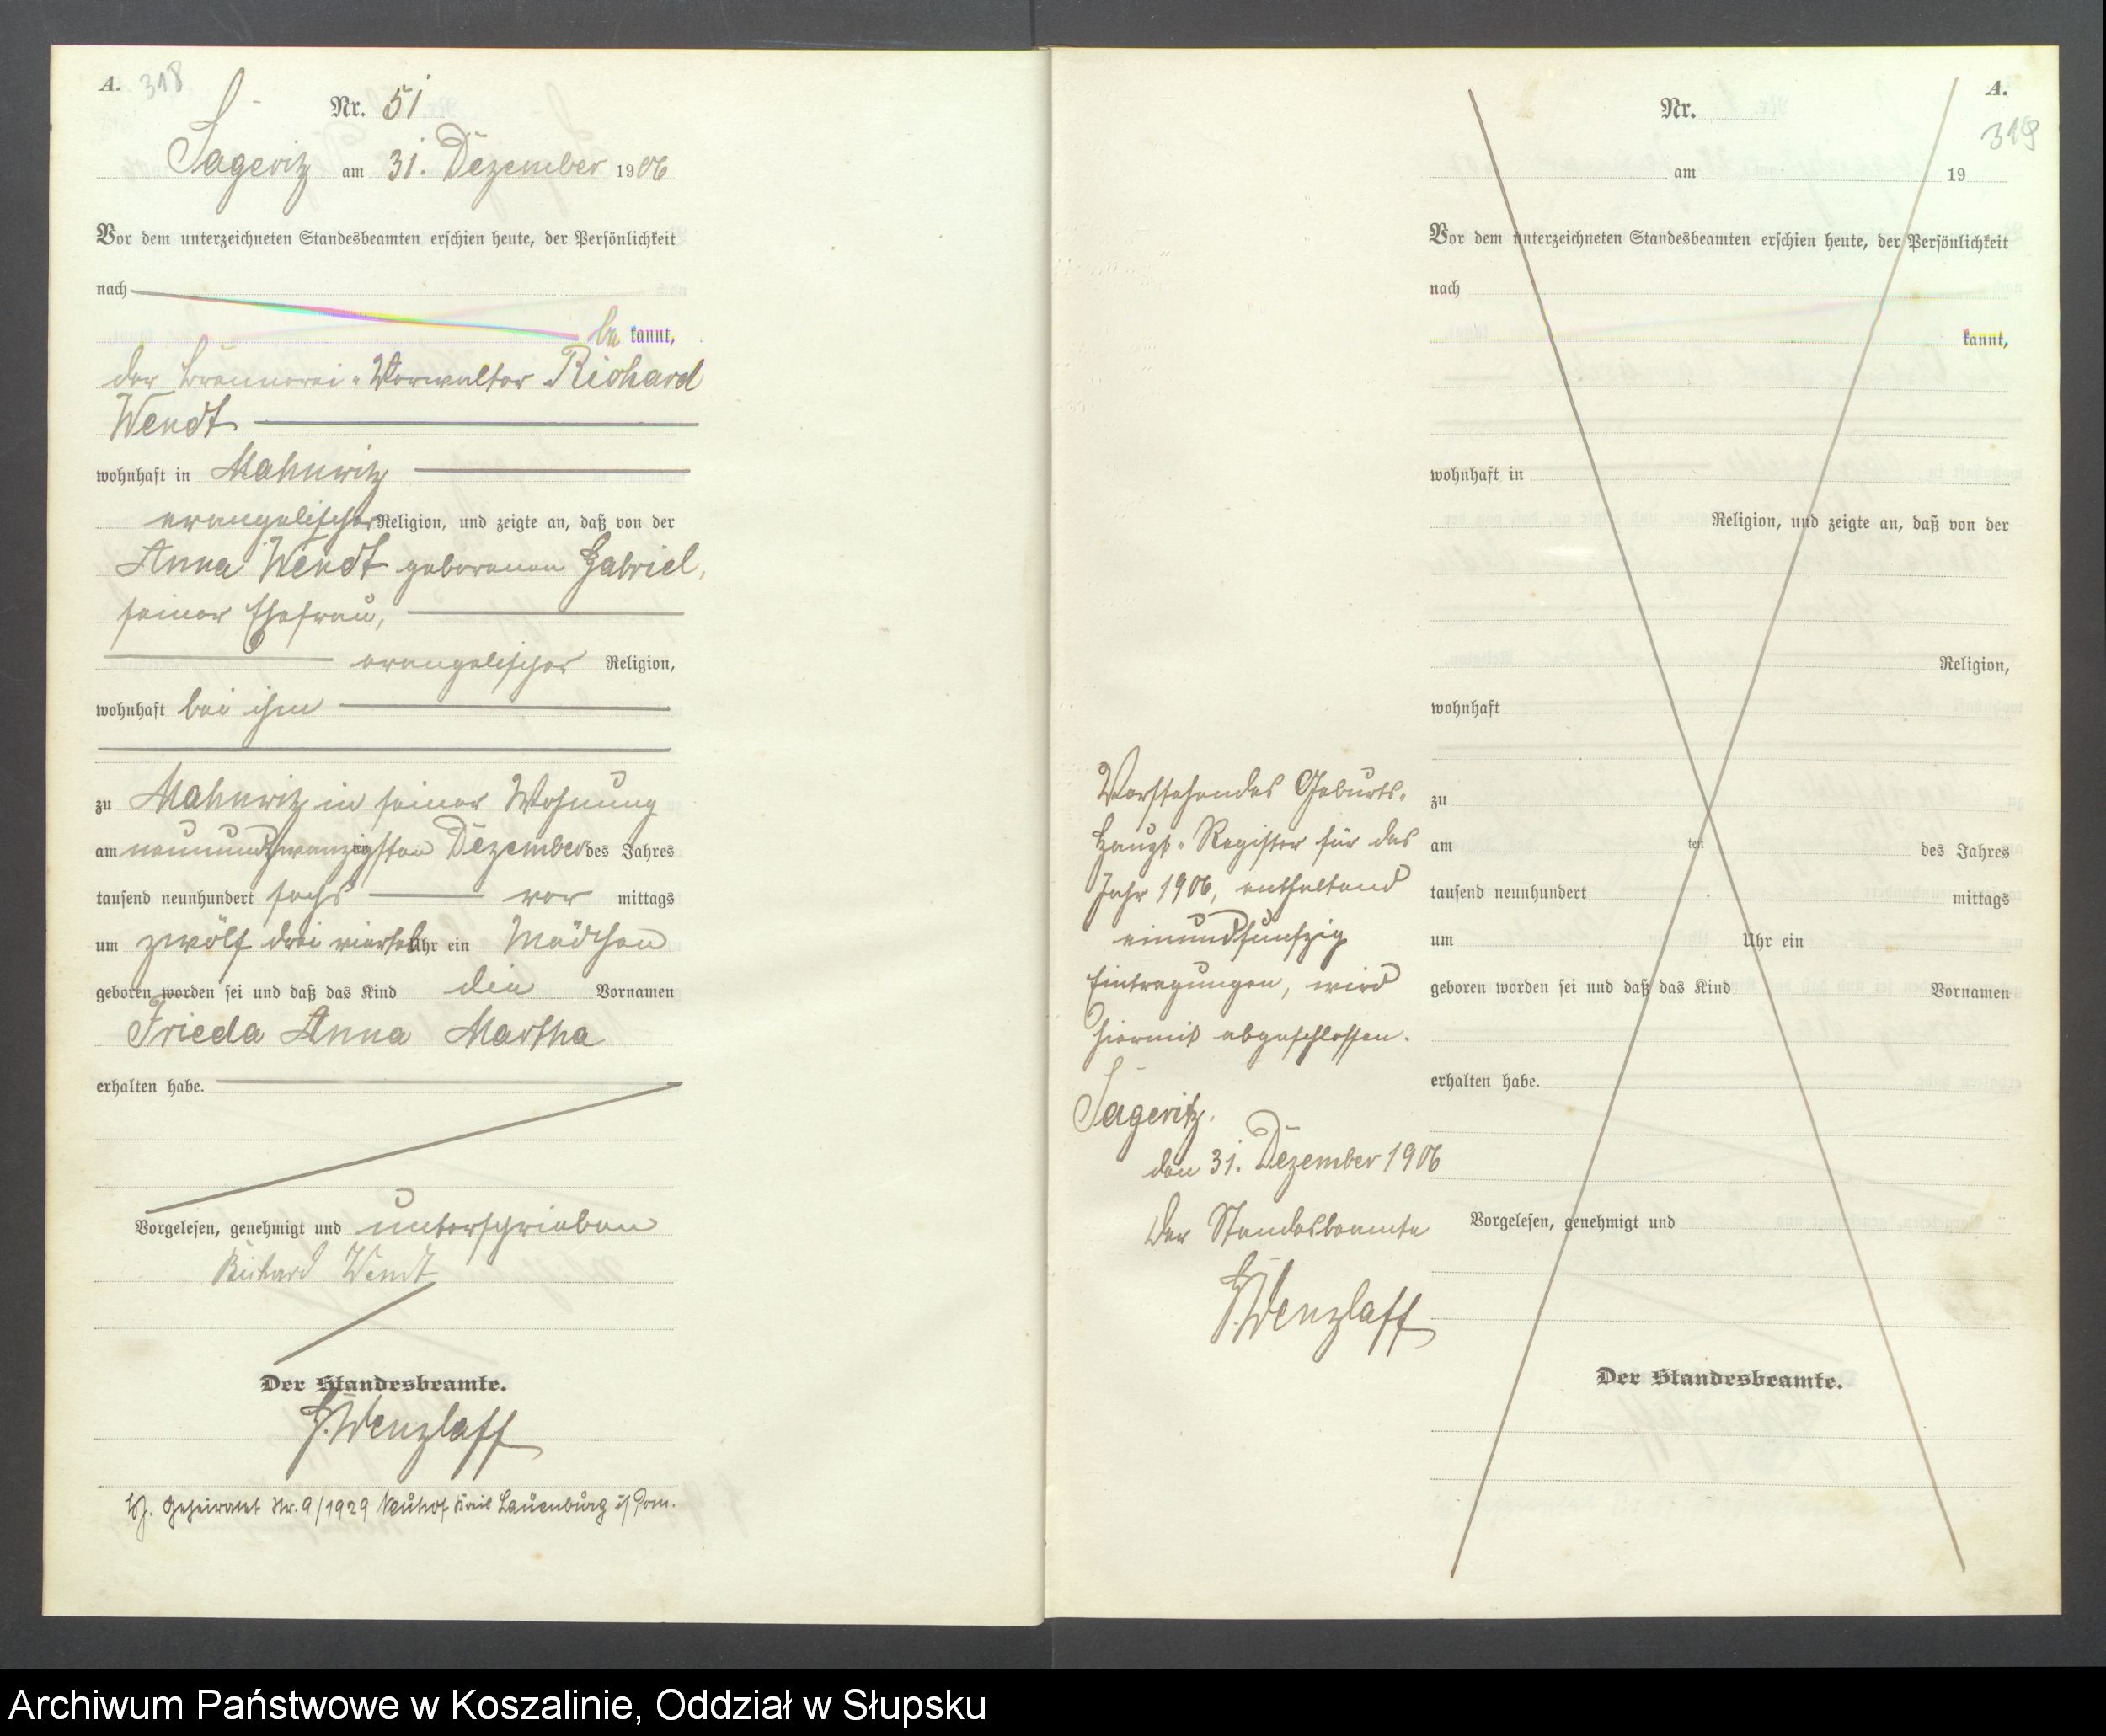 A. 318
Nr. 51
Sageritz am 31. Dezember 1906
Vor dem unterzeichneten Standesbeamten erschien heute, der Persönlichkeit
nach
be kannt,
der Brennerei-Verwalter Richard
Wendt
wohnhaft in Mahnwitz
evangelischer Religion, und zeigte an, daß von der
Anna Wendt geborenen Gabriel,
seiner Ehefrau,
evangelischer Religion,
wohnhaft bei ihm
zu Mahnwitz in seiner Wohnung
am neunundzwanzigsten Dezember des Jahres
tausend neunhundert sechs vor mittags
um zwölf drei viertel Uhr ein Mädchen
geboren worden sei und daß das Kind die Vornamen
Frieda Anna Martha
erhalten habe.
Vorgelesen, genehmigt und unterschrieben
Richard Wendt
Der Standesbeamte.
Wenzlaff
Geheiratet Nr. 9/1929 Neuhof Kreis Lauenburg i/Pom.
Vorstehendes Geburts-
Haupt-Register für das
Jahr 1906, enthaltend
einundfünfzig
Eintragungen, wird
hiermit abgeschlossen.
Sageritz,
den 31. Dezember 1906
Der Standesbeamte
Wenzlaff
A.
319
Nr.
am 19
Vor dem unterzeichneten Standesbeamten erschien heute, der Persönlichkeit
nach
kannt,
wohnhaft in
Religion, und zeigte an, daß von der
Religion,
wohnhaft
zu
am ten des Jahres
tausend neunhundert mittags
um Uhr ein
geboren worden sei und daß das Kind Vornamen
erhalten habe.
Vorgelesen, genehmigt und
Der Standesbeamte.
Archiwum Państwowe w Koszalinie, Oddział w Słupsku